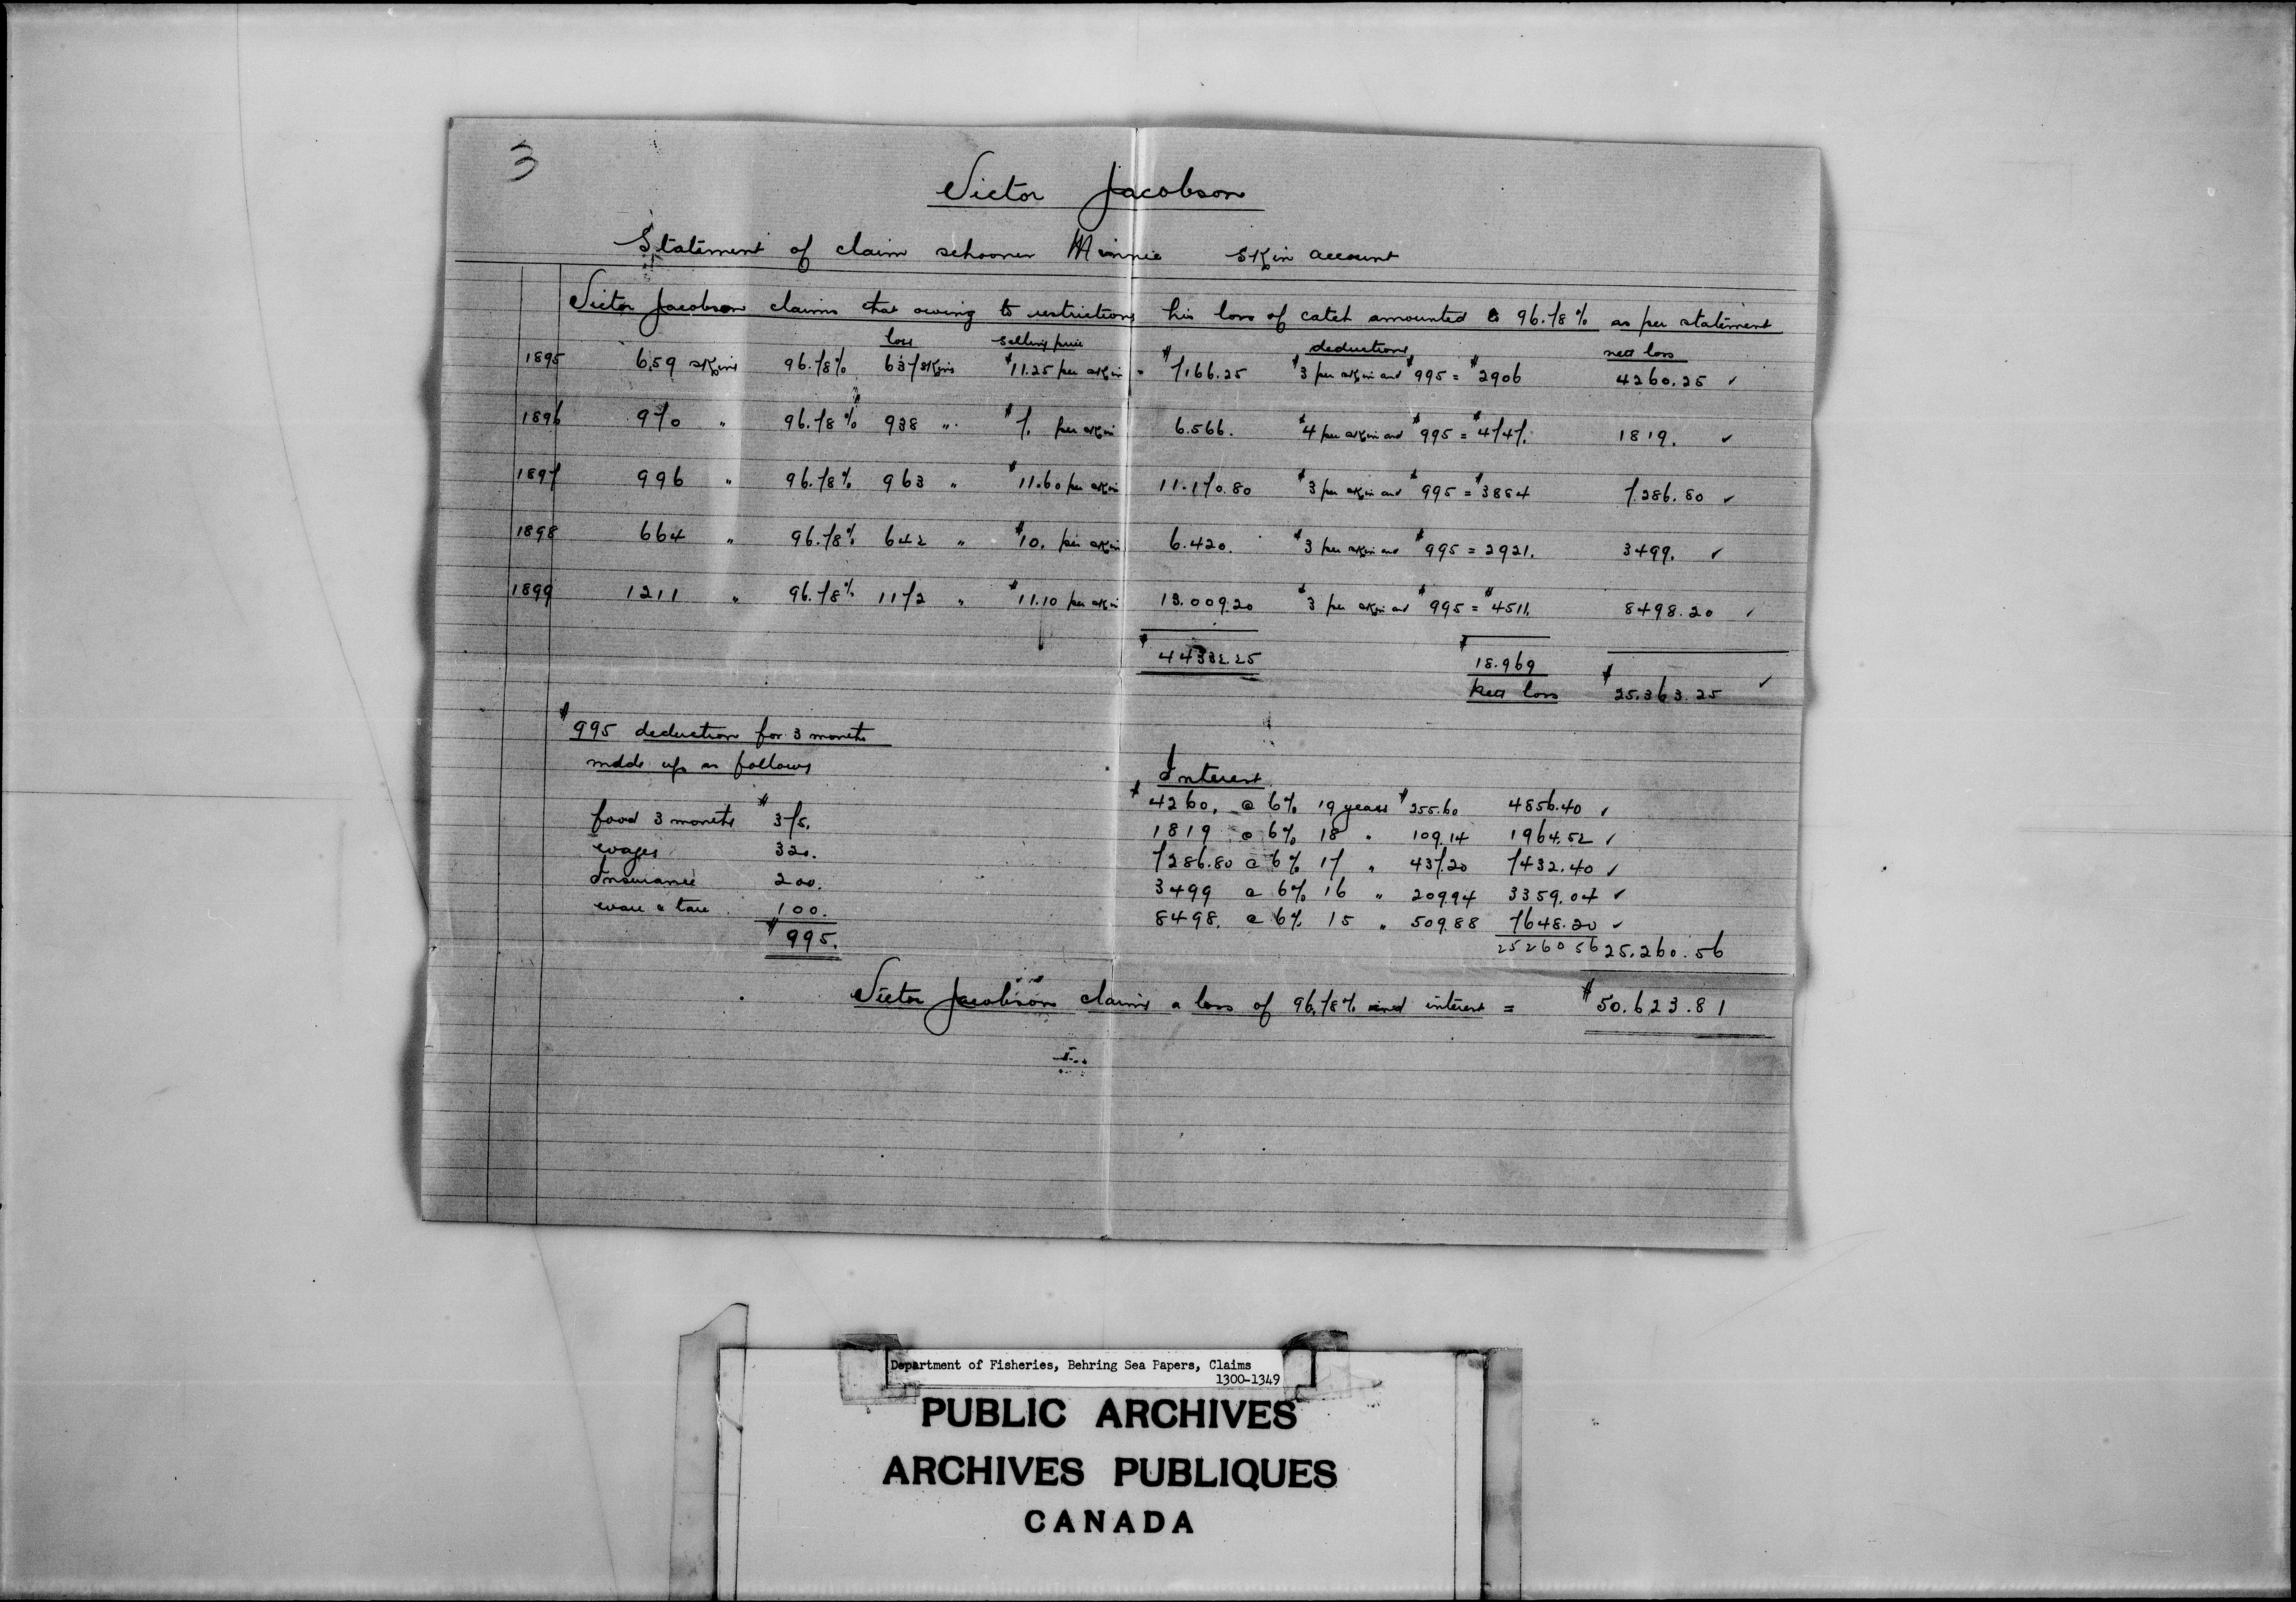 3
Victor Jacobson
Statement of claim schooner Minnie skin account
Victor Jacobson claims that owing to restrictions his loss of catch amounted to 96.78% as per statement
loss selling price deductions nett loss
1895 659 skins 96.78% 637 skins $11.25 per skin = $7,166.25 $3 per skin and $995 = $2906 4260.25 ✓
1896 970 " 96.78% 938 " $7. per skin 6.566. $4 per skin and $995 = $4747. 1819. ✓
1897 996 " 96.78% 963 " $11.60 per skin 11.170.80 $3 per skin and $995 = $3884 7.286.80 ✓
1898 664 " 96.78% 642 " $10. per skin 6.420. $3 per skin and $995 = 2921. 3499. ✓
1899 1211 " 96.78% 1172 " $11.10 per skin 13.009.20 $3 per skin and $995 = $4511. 8498.20 ✓
$44332.25 $18.969
Nett loss $25.363.25 ✓
$995 deduction for 3 months
made up as follows
food 3 months $375.
wages 320.
Insurance 200.
ware & tare 100.
$995.
Interest
$4260. @ 6% 19 years $255.60 4856.40 ✓
1819 @ 6% 18 " 109.14 1964.52 ✓
7286.80 @ 6% 17 " 437.20 7432.40 ✓
3499 @ 6% 16 " 209.94 3359.04 ✓
8498. @ 6% 15 " 509.88 7648.20 ✓
25260 56 25.260.56
Victor Jacobson claims a loss of 96.78% and interest = $50.623.81
Department of Fisheries, Behring Sea Papers, Claims
1300-1349
PUBLIC ARCHIVES
ARCHIVES PUBLIQUES
CANADA